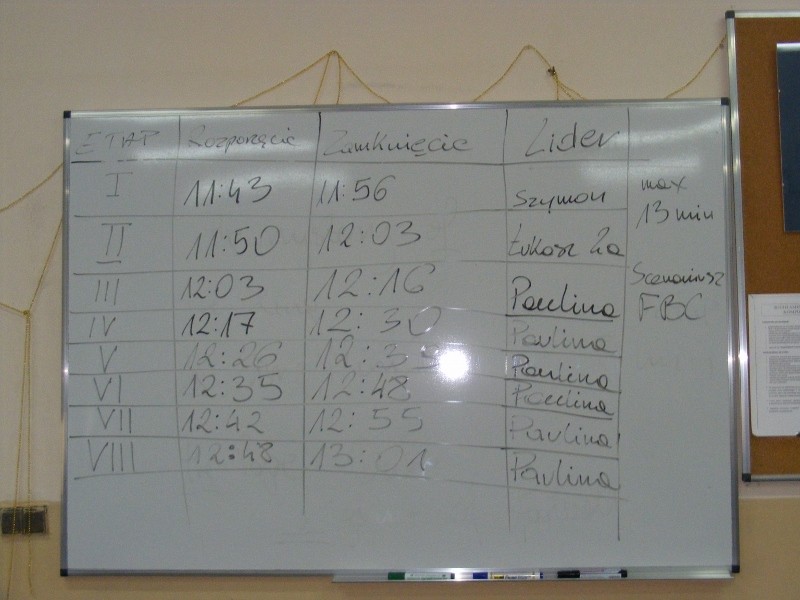 ETAP Rozporęcie Zamknięcie Lider
I 11:43 11:56 Szymon
II 11:50 12:03 Łukasz Za
III 12:03 12:16 Paulina
IV 12:17 12:30 Paulina
V 12:26 12:39 Paulina
VI 12:35 12:48 Paulina
VII 12:42 12:55 Paulina
VIII 12:48 13:01 Paulina
max
13 min
Scenariusz
FBC